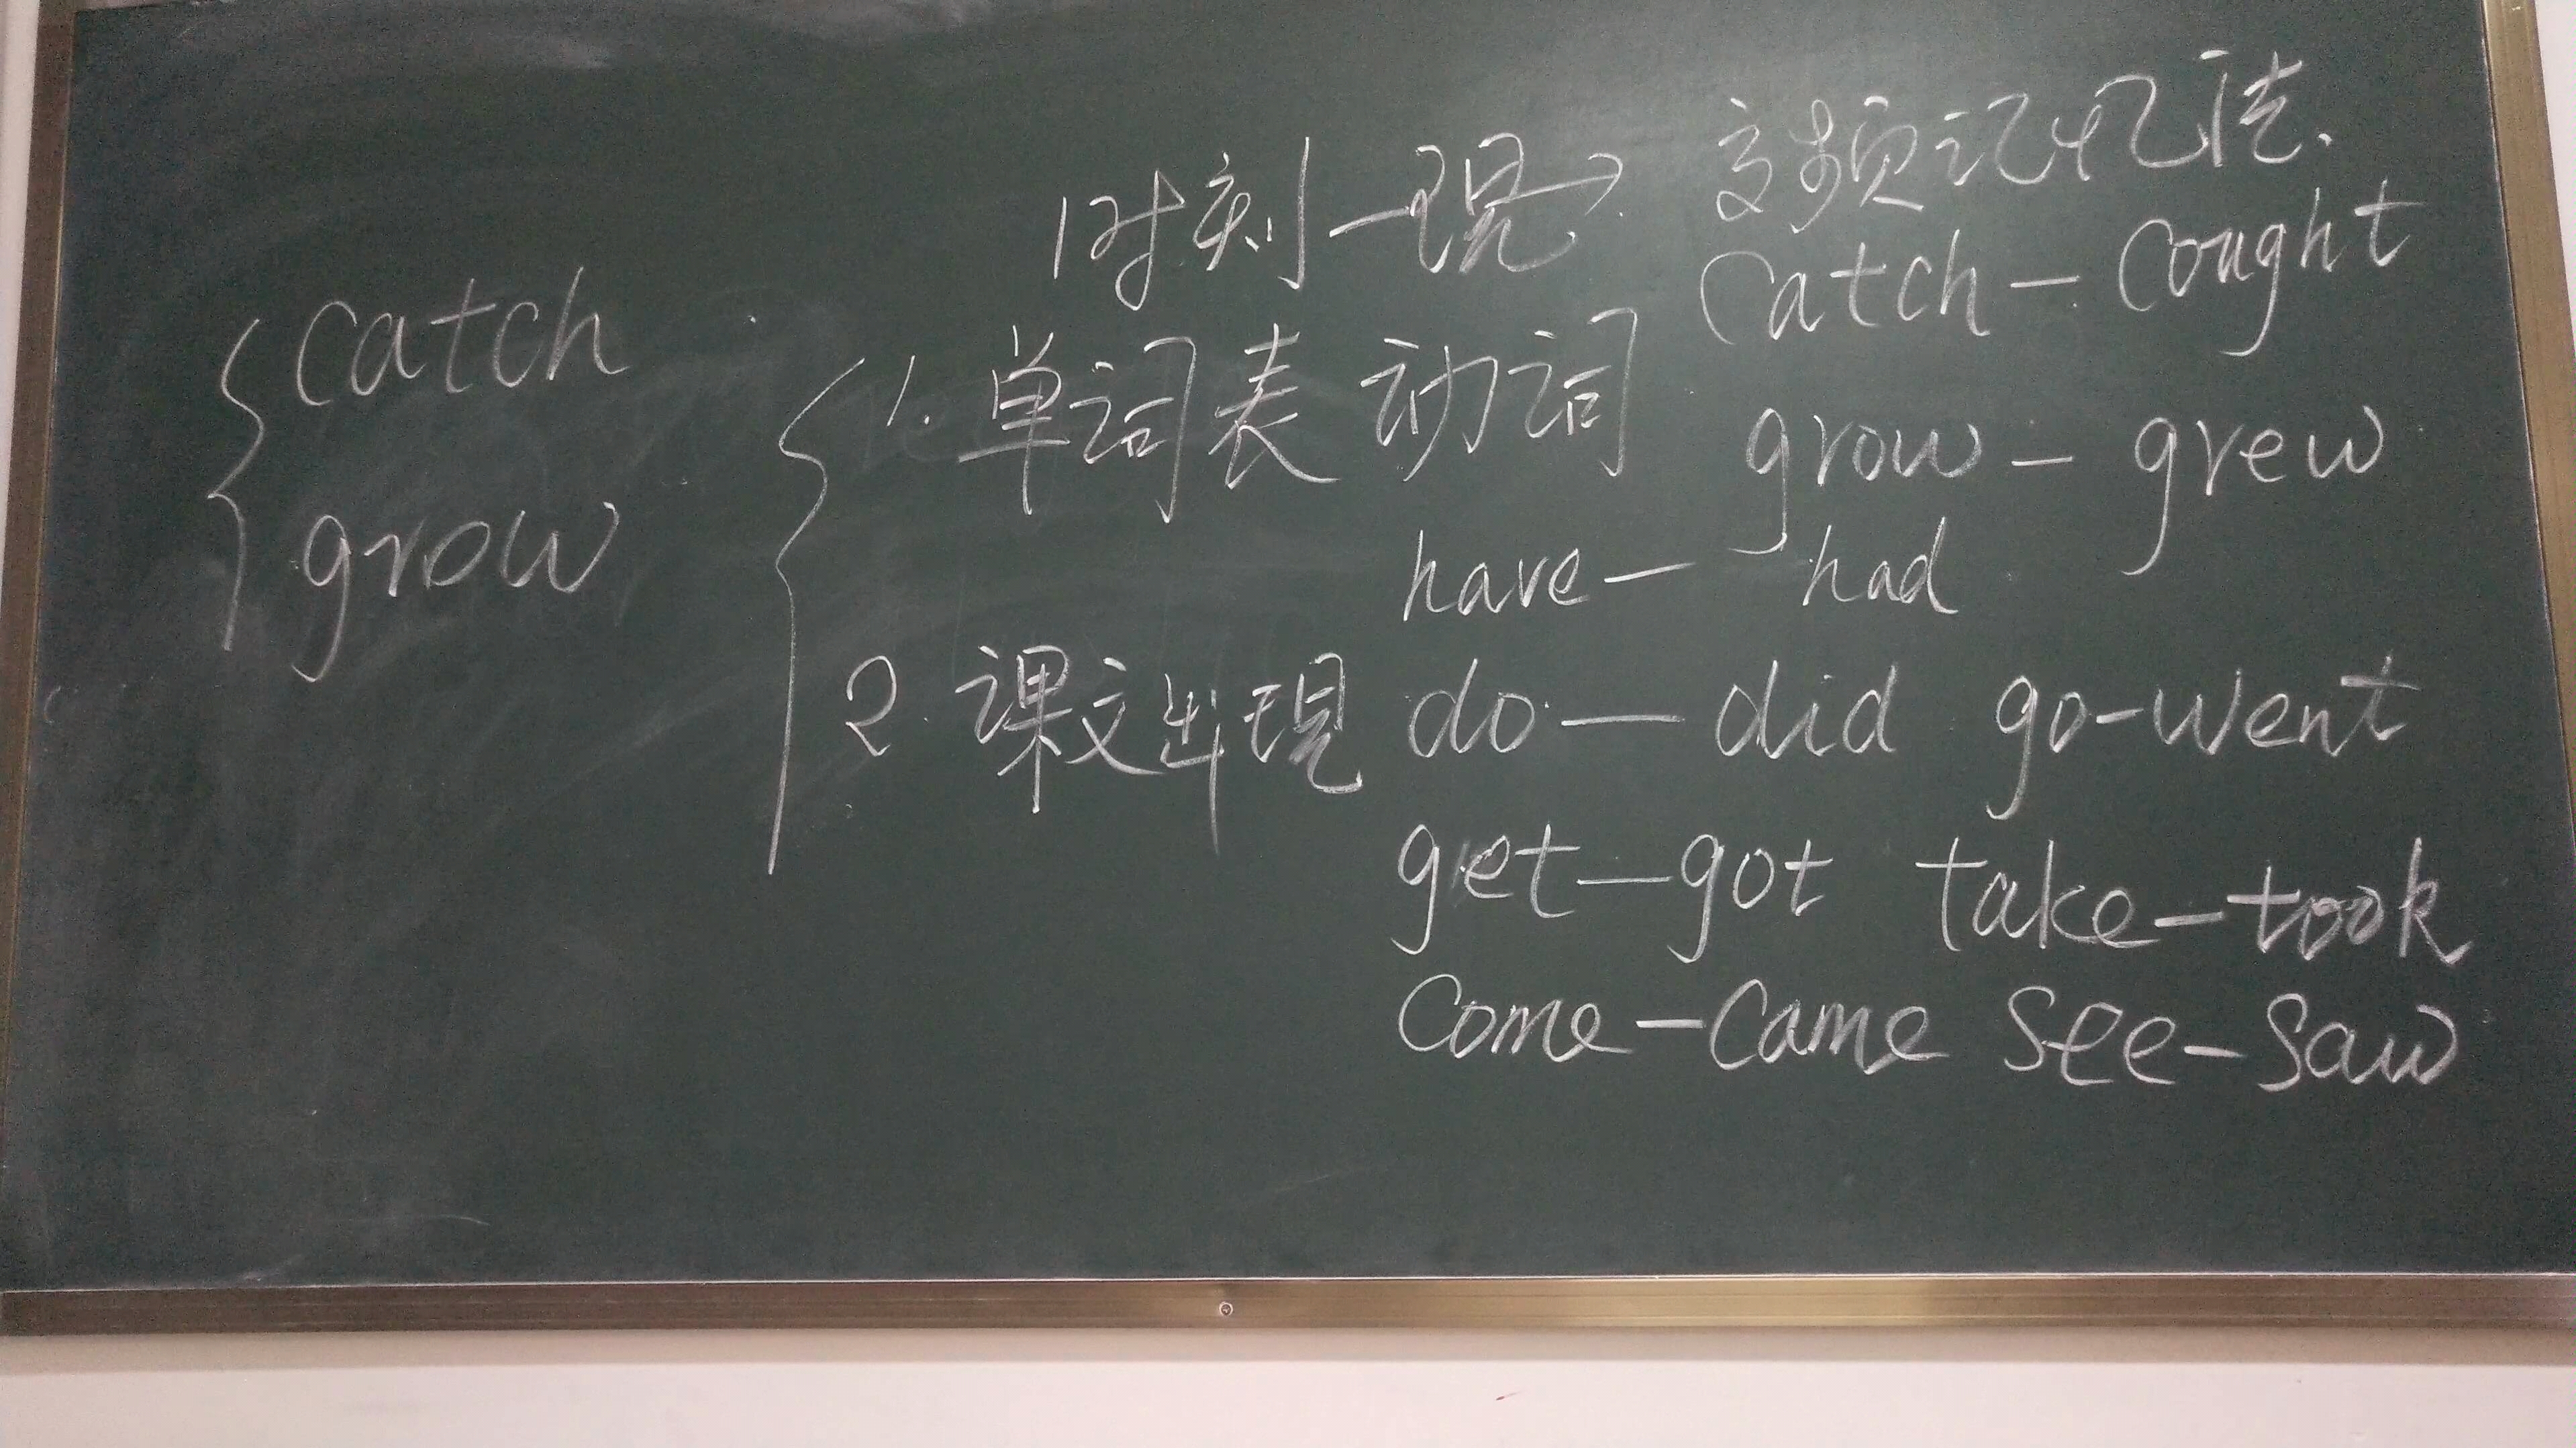 时刻一现→ 频记忆法.
catch
grow
catch - cought
1. 单词表 动词 grow - grew
have - had
2. 课文出现 do - did go-went
get-got take-took
come-came see-saw